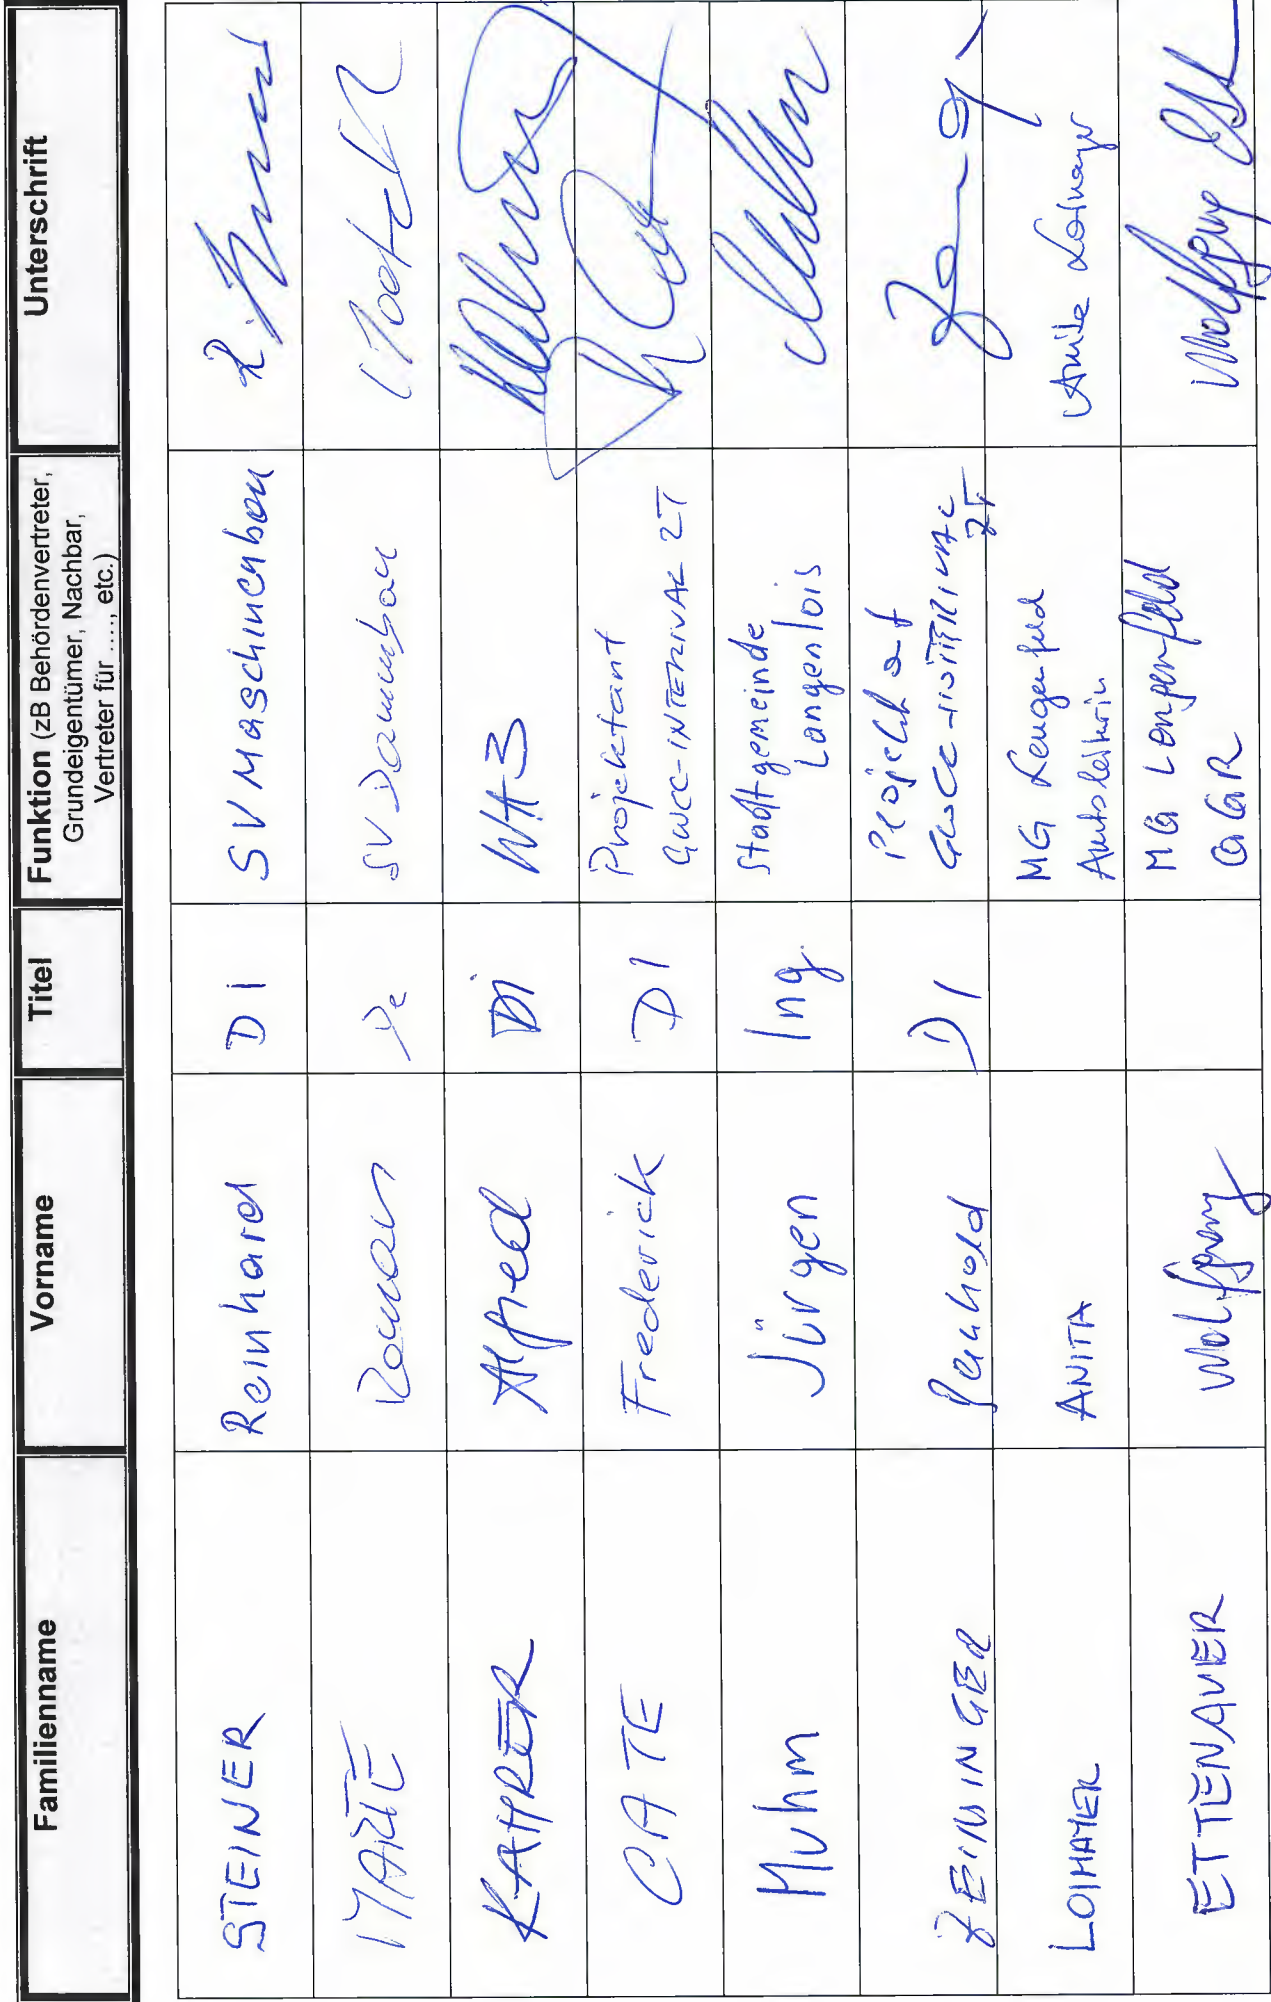 Familienname
Vorname
Titel
Funktion (zB Behördenvertreter,
Grundeigentümer, Nachbar,
Vertreter für ...., etc.)
Unterschrift
STEINER
Reinhard
DI
SV Maschinenbau
MARTE
Roman
SV Dammbau
KAHRER
Alfred
DI
WA3
CATE
Frederick
DI
Projektant
GWCC-INTERIVAL ZT
Muhm
Jürgen
Ing.
Stadtgemeinde
Langenlois
ZEININGER
Reinhold
DI
ZT
LOIMAYER
ANITA
MG Lengenfeld
Amtsleiterin
Anita Loimayer
ETTENAUER
Wolfgang
MG Lengenfeld
GGR
Wolfgang